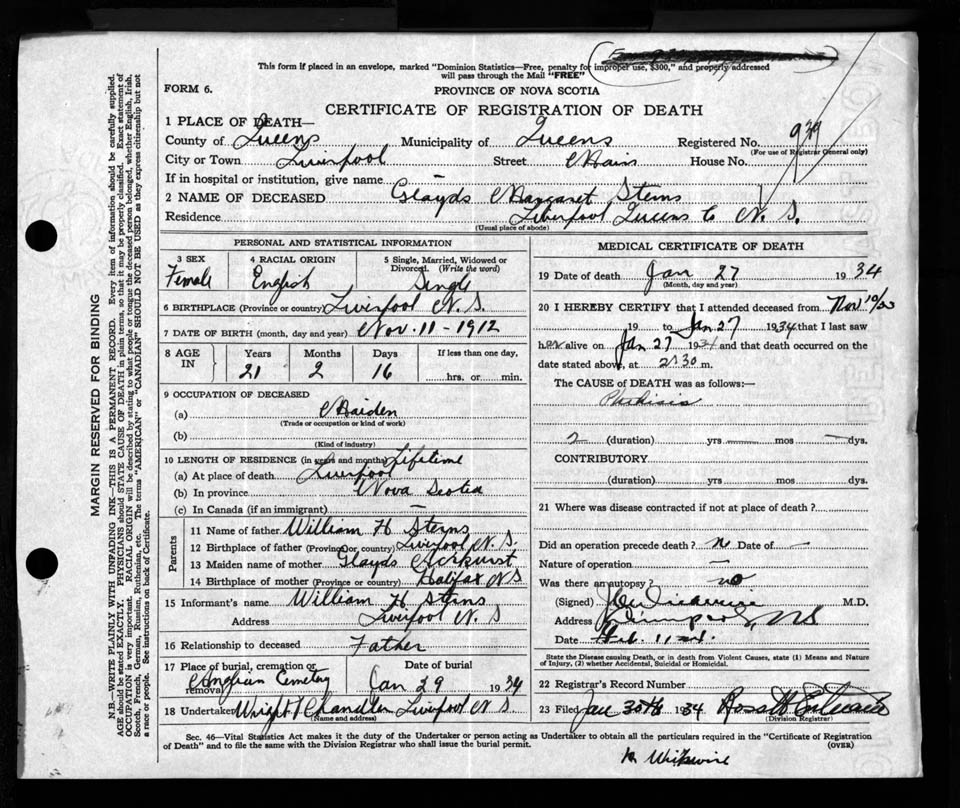 This form if placed in an envelope, marked "Dominion Statistics—Free, penalty for improper use, $300," and properly addressed
will pass through the Mail "FREE"
FORM 6.
PROVINCE OF NOVA SCOTIA
CERTIFICATE OF REGISTRATION OF DEATH
1 PLACE OF DEATH—
County of Queens Municipality of Queens Registered No. 939
(For use of Registrar General only)
City or Town Liverpool Street Main House No.
If in hospital or institution, give name —
2 NAME OF DECEASED Glayds Margaret Sterns
Residence Liverpool Queens Co N. S.
(Usual place of abode)
PERSONAL AND STATISTICAL INFORMATION
3 SEX 4 RACIAL ORIGIN 5 Single, Married, Widowed or Divorced. (Write the word)
Female English Single
6 BIRTHPLACE (Province or country) Liverpool N. S.
7 DATE OF BIRTH (month, day and year) Nov. 11 - 1912
8 AGE IN Years Months Days If less than one day,
21 2 16 hrs. or min.
9 OCCUPATION OF DECEASED
(a) Maiden
(Trade or occupation or kind of work)
(b)
(Kind of industry)
10 LENGTH OF RESIDENCE (in years and months) Lifetime
(a) At place of death Liverpool
(b) In province Nova Scotia
(c) In Canada (if an immigrant) —
Parents
11 Name of father William H Sterns
12 Birthplace of father (Province or country) Liverpool N. S.
13 Maiden name of mother Glayds
14 Birthplace of mother (Province or country) Halifax N S
15 Informant's name William H. Sterns
Address Liverpool N. S
16 Relationship to deceased Father
17 Place of burial, cremation or removal Date of burial
Cemetery Jan 29 1934
18 Undertaker Wright Chandler Liverpool N. S.
(Name and address)
MEDICAL CERTIFICATE OF DEATH
19 Date of death Jan 27 1934
(Month, day and year)
20 I HEREBY CERTIFY that I attended deceased from Nov 10/33
19 to Jan 27 1934 that I last saw
her alive on Jan 27 1934 and that death occurred on the
date stated above, at 2:30 m.
The CAUSE OF DEATH was as follows:—
Phthisis
2 (duration) yrs — mos — dys.
CONTRIBUTORY
(duration) yrs. mos. dys.
21 Where was disease contracted if not at place of death?
Did an operation precede death? n Date of —
Nature of operation —
Was there an autopsy? no
(Signed) M.D.
Address Liverpool, NS
Date Feb. 1
State the Disease causing Death, or in death from Violent Causes, state (1) Means and Nature of Injury, (2) whether Accidental, Suicidal or Homicidal.
22 Registrar's Record Number
23 Filed Jan 30th 1934
(Division Registrar)
Sec. 46—Vital Statistics Act makes it the duty of the Undertaker or person acting as Undertaker to obtain all the particulars required in the "Certificate of Registration
of Death" and to file the same with the Division Registrar who shall issue the burial permit.
(OVER)
MARGIN RESERVED FOR BINDING
N.B.—WRITE PLAINLY WITH UNFADING INK—THIS IS A PERMANENT RECORD. Every item of information should be carefully supplied.
AGE should be stated EXACTLY. PHYSICIANS should STATE CAUSE OF DEATH in plain terms, so that it may be properly classified. Exact statement of
OCCUPATION is very important. RACIAL ORIGIN will be described by stating to what people or tongue the deceased person belonged, whether English, Irish,
Scotch, French, German, Russian, Ruthenian, etc. The terms "AMERICAN" or "CANADIAN" SHOULD NOT BE USED as they express citizenship but not
a race or people. See instructions on back of Certificate.